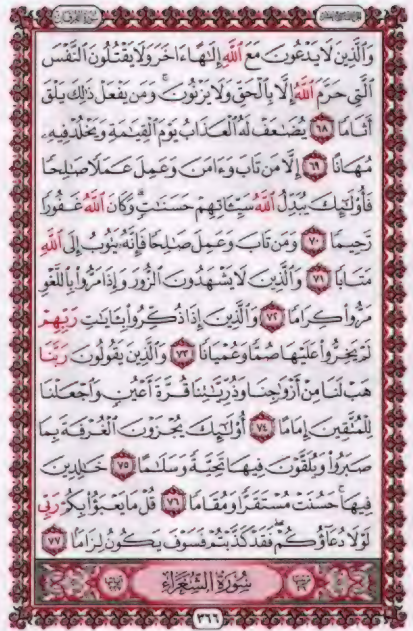 سورة الفرقان
وَالَّذِينَ لَا يَدْعُونَ مَعَ اللَّهِ إِلَٰهًا ءَاخَرَ وَلَا يَقْتُلُونَ النَّفْسَ
الَّتِي حَرَّمَ اللَّهُ إِلَّا بِالْحَقِّ وَلَا يَزْنُونَ ۚ وَمَن يَفْعَلْ ذَٰلِكَ يَلْقَ
أَثَامًا ٦٨ يُضَٰعَفْ لَهُ الْعَذَابُ يَوْمَ الْقِيَٰمَةِ وَيَخْلُدْ فِيهِۦ
مُهَانًا ٦٩ إِلَّا مَن تَابَ وَءَامَنَ وَعَمِلَ عَمَلًا صَٰلِحًا
فَأُو۟لَٰٓئِكَ يُبَدِّلُ اللَّهُ سَيِّـَٔاتِهِمْ حَسَنَٰتٍ ۗ وَكَانَ اللَّهُ غَفُورًا
رَّحِيمًا ٧٠ وَمَن تَابَ وَعَمِلَ صَٰلِحًا فَإِنَّهُۥ يَتُوبُ إِلَى اللَّهِ
مَتَابًا ٧١ وَالَّذِينَ لَا يَشْهَدُونَ الزُّورَ وَإِذَا مَرُّوا۟ بِاللَّغْوِ
مَرُّوا۟ كِرَامًا ٧٢ وَالَّذِينَ إِذَا ذُكِّرُوا۟ بِـَٔايَٰتِ رَبِّهِمْ
لَمْ يَخِرُّوا۟ عَلَيْهَا صُمًّا وَعُمْيَانًا ٧٣ وَالَّذِينَ يَقُولُونَ رَبَّنَا
هَبْ لَنَا مِنْ أَزْوَٰجِنَا وَذُرِّيَّٰتِنَا قُرَّةَ أَعْيُنٍ وَاجْعَلْنَا
لِلْمُتَّقِينَ إِمَامًا ٧٤ أُو۟لَٰٓئِكَ يُجْزَوْنَ الْغُرْفَةَ بِمَا
صَبَرُوا۟ وَيُلَقَّوْنَ فِيهَا تَحِيَّةً وَسَلَٰمًا ٧٥ خَٰلِدِينَ
فِيهَا ۚ حَسُنَتْ مُسْتَقَرًّا وَمُقَامًا ٧٦ قُلْ مَا يَعْبَؤُا۟ بِكُمْ رَبِّي
لَوْلَا دُعَآؤُكُمْ ۖ فَقَدْ كَذَّبْتُمْ فَسَوْفَ يَكُونُ لِزَامًا ٧٧
سُورَةُ الشُّعَرَاءِ
٣٦٦